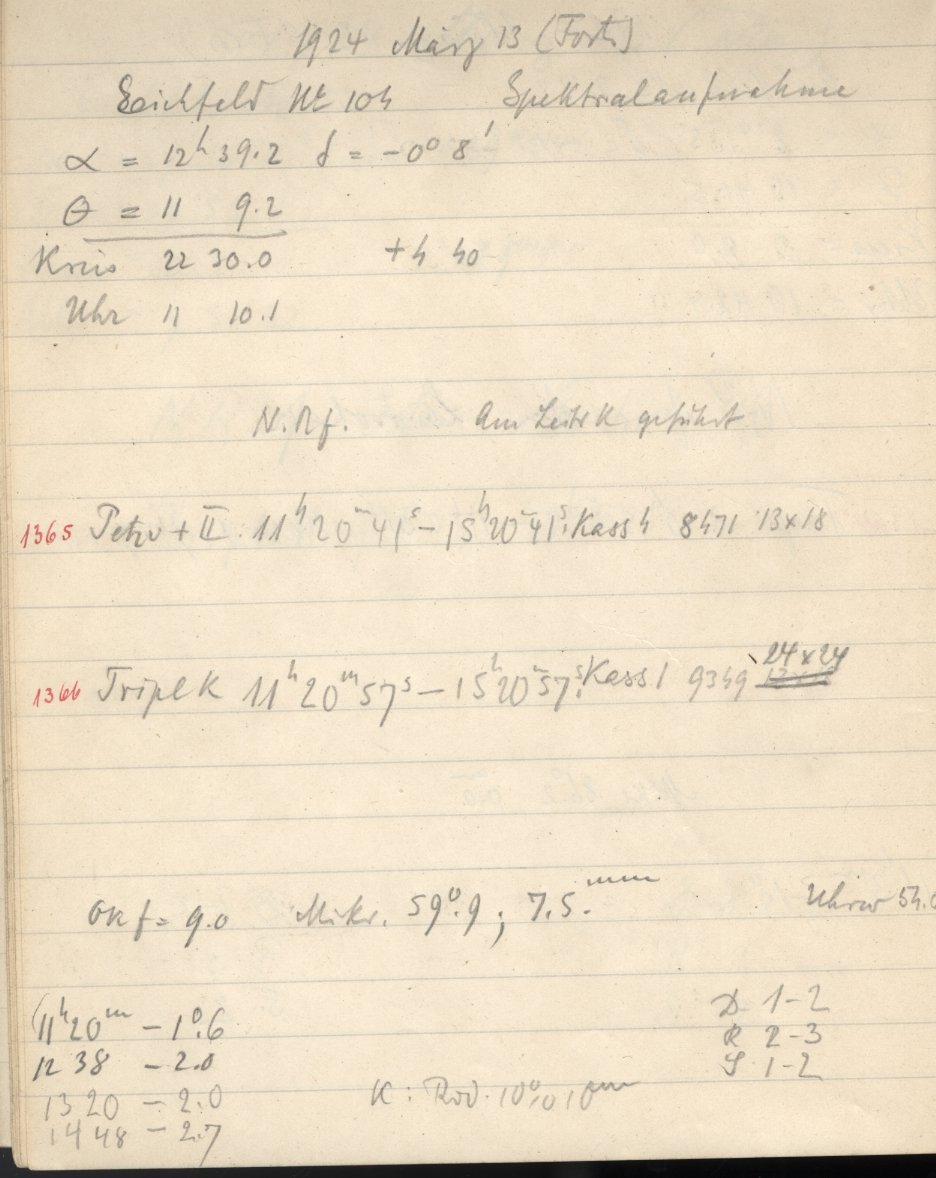 1924 März 13 (Forts)
Eichfeld Nr 104 Spektralaufnahme
α = 12ʰ 39.2 δ = -0° 8'
θ = 11 9.2
Kreis 22 30.0 +4 40
Uhr 11 10.1
N. Rf. Am Leitrk geführt
1365 Petzv + II: 11ʰ20ᵐ41ˢ – 15ʰ20ᵐ41ˢ: Kass 4 8471 13×18
1366 Triplk 11ʰ20ᵐ57ˢ – 15ʰ20ᵐ57ˢ: Kass 1 9349 24×24
Okf = 9.0 Mikr. 59°.9; 7.5 mm Uhrw 54.0
11ʰ20ᵐ – 1°.6 D 1-2
12 38 – 2.0 R 2-3
13 20 – 2.0 S 1-2
14 48 – 2.7 K: Rod. 10% 10ᵐᵐ